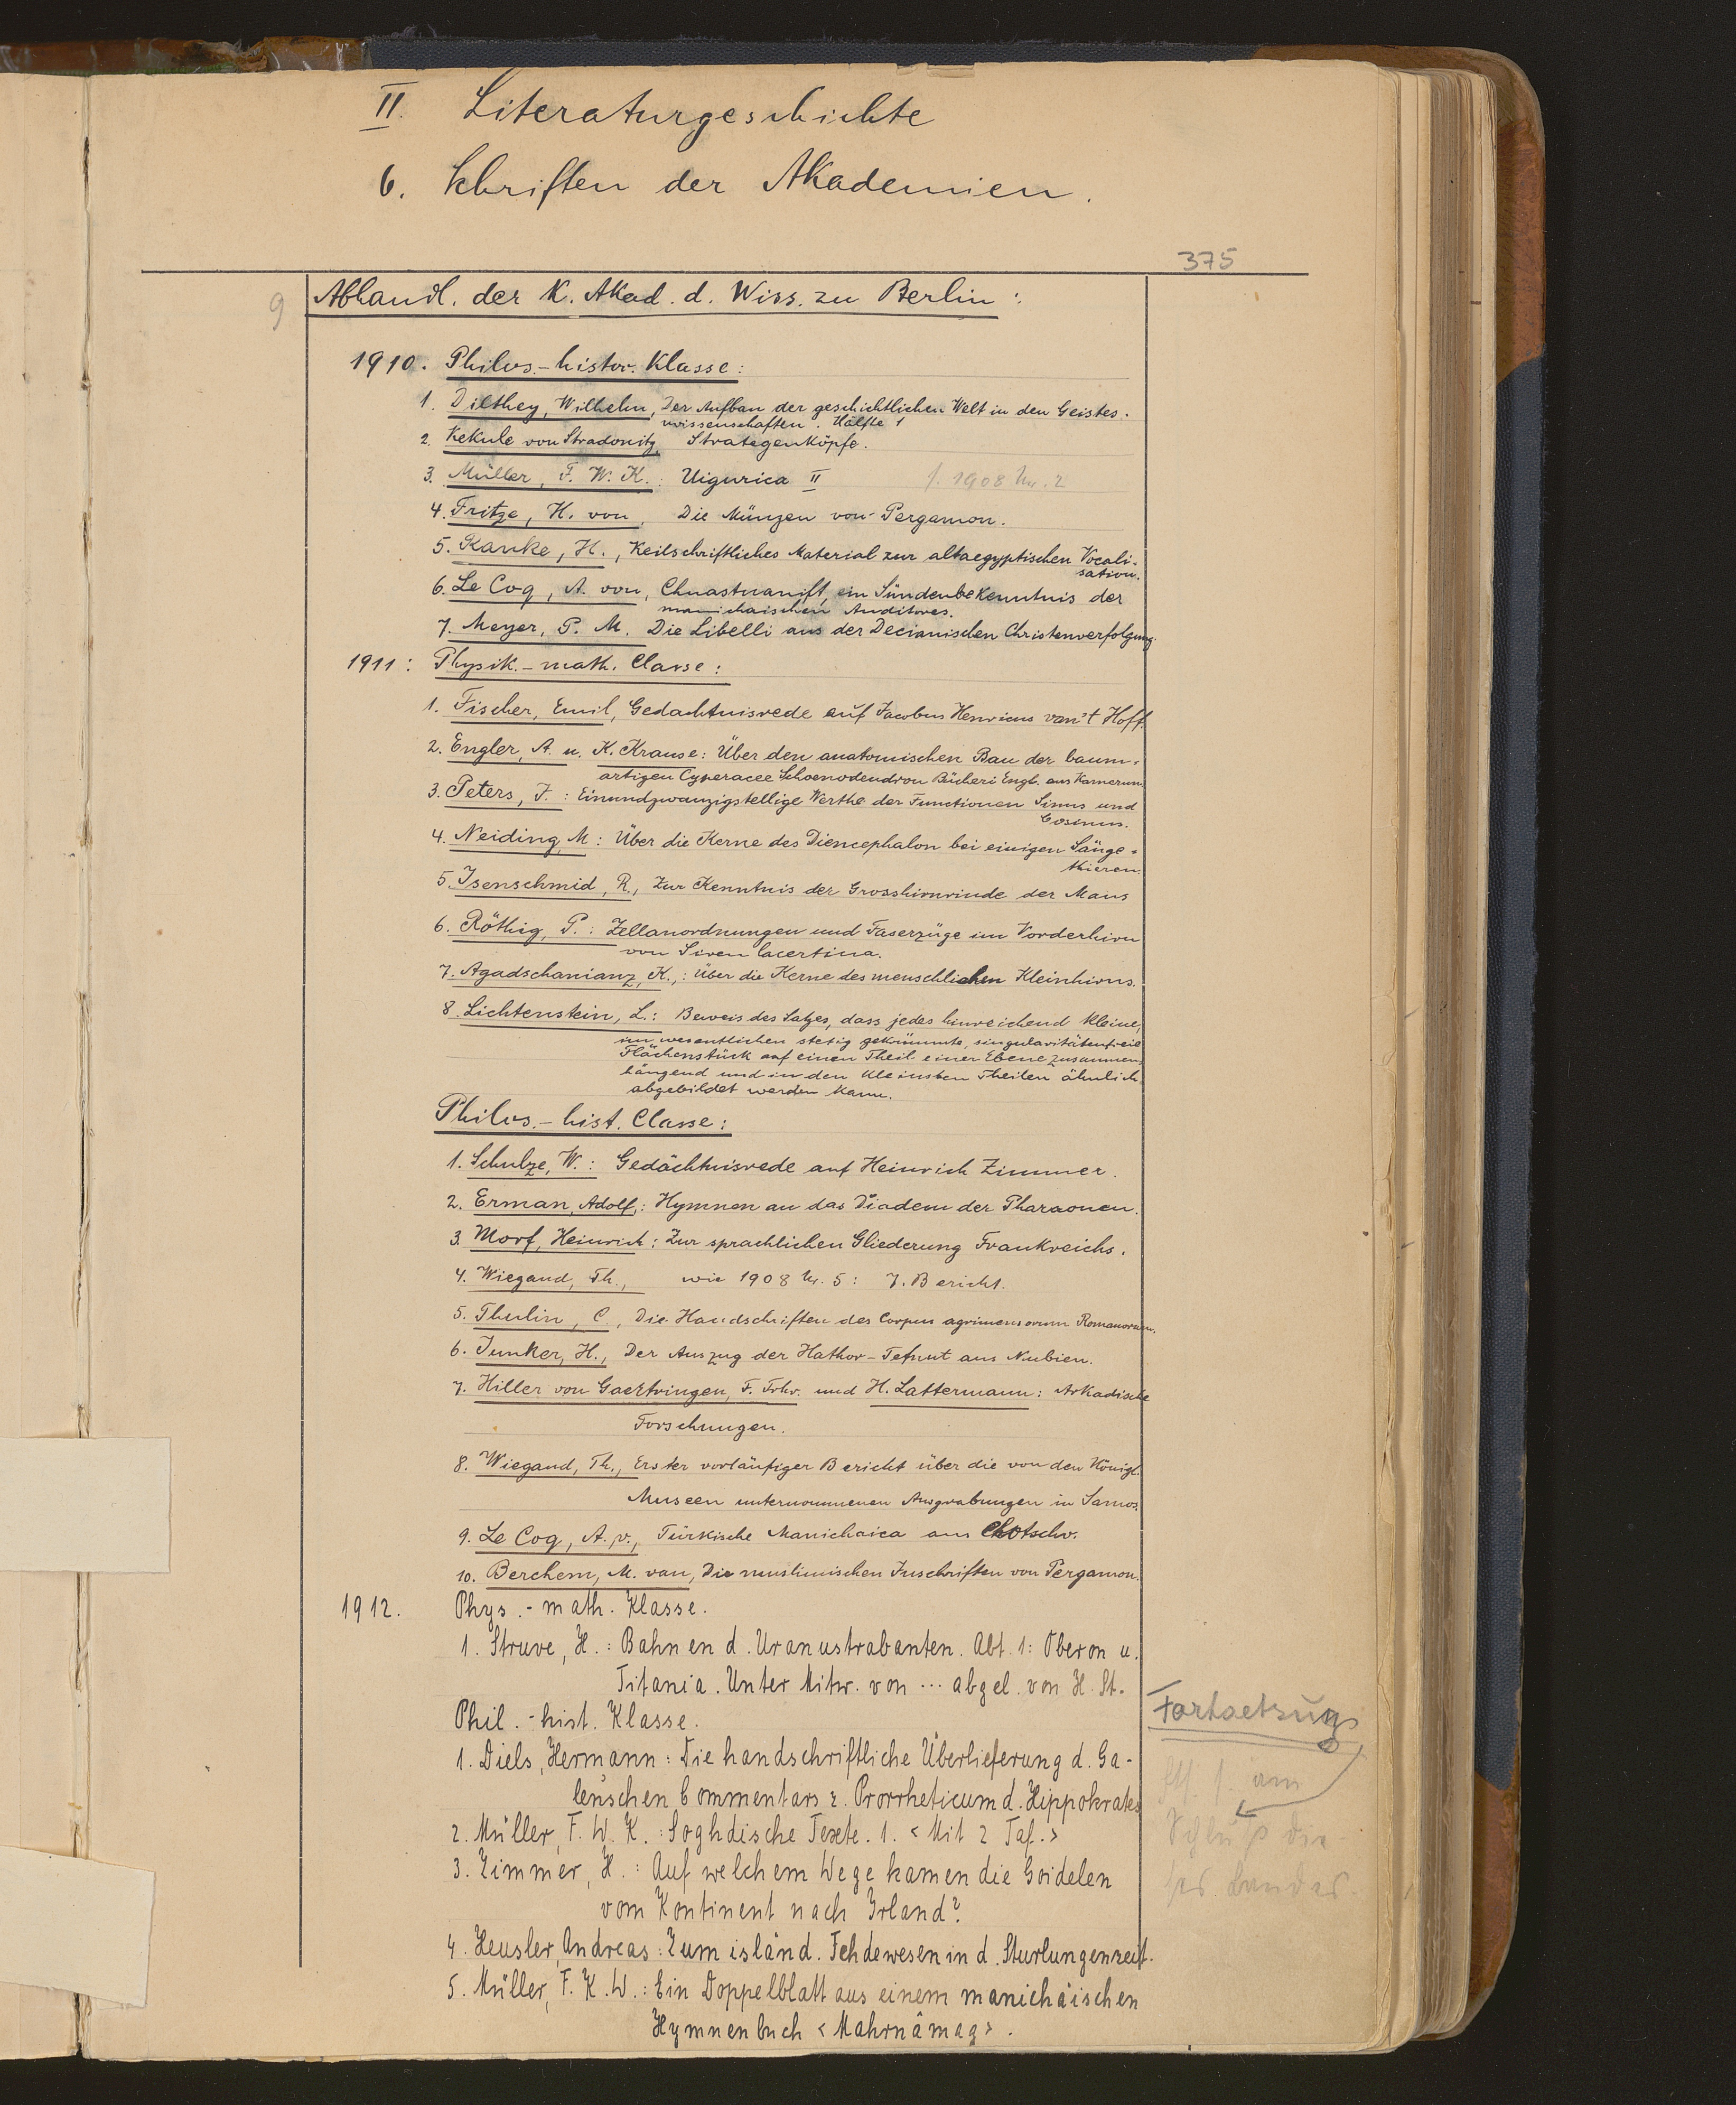 II. Literaturgeschichte
6. Schriften der Akademien.
375
9
Abhandl. der K. Akad. d. Wiss. zu Berlin:
1910. Philos.-histor. Klasse:
1. Dilthey, Wilhelm, Der Aufbau der geschichtlichen Welt in den Geistes-
wissenschaften. Hälfte 1
2. Kekule von Stradonitz, Strategenköpfe.
3. Müller, F. W. K.: Uigurica II f. 1908 Nr. 2
4. Fritze, H. von, Die Münzen von Pergamon.
5. Ranke, H., Keilschriftliches Material zur altaegyptischen Vocali-
sation.
6. Le Coq, A. von, Chuastuanift, ein Sündenbekenntnis der
manichaischen Auditores.
7. Meyer, P. M. Die Libelli aus der Decianischen Christenverfolgung.
1911: Physik.-math. Classe:
1. Fischer, Emil, Gedächtnisrede auf Jacobus Henricus van't Hoff.
2. Engler, A. u. K. Krause: Über den anatomischen Bau der baum-
artigen Cyperacee Schoenodendron Bücheri Engl. aus Kamerun
3. Peters, J.: Einundzwanzigstellige Werthe der Functionen Sinus und
Cosinus.
4. Neiding, M: Über die Kerne des Diencephalon bei einigen Säuge-
thieren.
5. Isenschmid, R., Zur Kenntnis der Grosshirnrinde der Maus
6. Röthig, P.: Zellanordnungen und Faserzüge im Vorderhirn
von Siren lacertina.
7. Agadschanianz, K.,: Über die Kerne des menschlichen Kleinhirns.
8. Lichtenstein, L.: Beweis des Satzes, dass jedes hinreichend kleine,
im wesentlichen stetig gekrümmte, singularitätenfreie
Flächenstück auf einen Theil einer Ebene zusammen-
hängend und in den kleinsten Theilen ähnlich
abgebildet werden kann.
Philos.-hist. Classe:
1. Schulze, W.: Gedächtnisrede auf Heinrich Zimmer.
2. Erman, Adolf,: Hymnen an das Diadem der Pharaonen.
3. Morf, Heinrich: Zur sprachlichen Gliederung Frankreichs.
4. Wiegand, Th., wie 1908 Nr. 5: 7. Bericht.
5. Thulin, C., Die Handschriften des Corpus agrimensorum Romanorum.
6. Junker, H., Der Auszug der Hathor-Tefnut aus Nubien.
7. Hiller von Gaertringen, F. Frhr. und H. Lattermann: Arkadische
Forschungen.
8. Wiegand, Th., Erster vorläufiger Bericht über die von den Königl.
Museen unternommenen Ausgrabungen in Samos.
9. Le Coq, A. v., Türkische Manichaica aus Chotscho.
10. Berchem, M. van, Die muslimischen Inschriften von Pergamon.
1912. Phys.-math. Klasse.
1. Struve, H.: Bahnen d. Uranustrabanten. Abt. 1: Oberon u.
Titania. Unter Mitw. von ... abgel. von H. St.
Phil.-hist. Klasse.
Fortsetzung
1. Diels, Hermann: Die handschriftliche Überlieferung d. Ga-
lenschen Commentars z. Prorrheticum d. Hippokrates
2. Müller, F. W. K.: Soghdische Texte. 1. <Mit 2 Taf.>
3. Zimmer, H.: Auf welchem Wege kamen die Goidelen
vom Kontinent nach Irland?
am
Schluß die-
ses Bandes.
4. Heusler, Andreas: Zum isländ. Fehdewesen in d. Sturlungenzeit.
5. Müller, F. K. W.: Ein Doppelblatt aus einem manichäischen
Hymnenbuch <Mahrnâmag>.